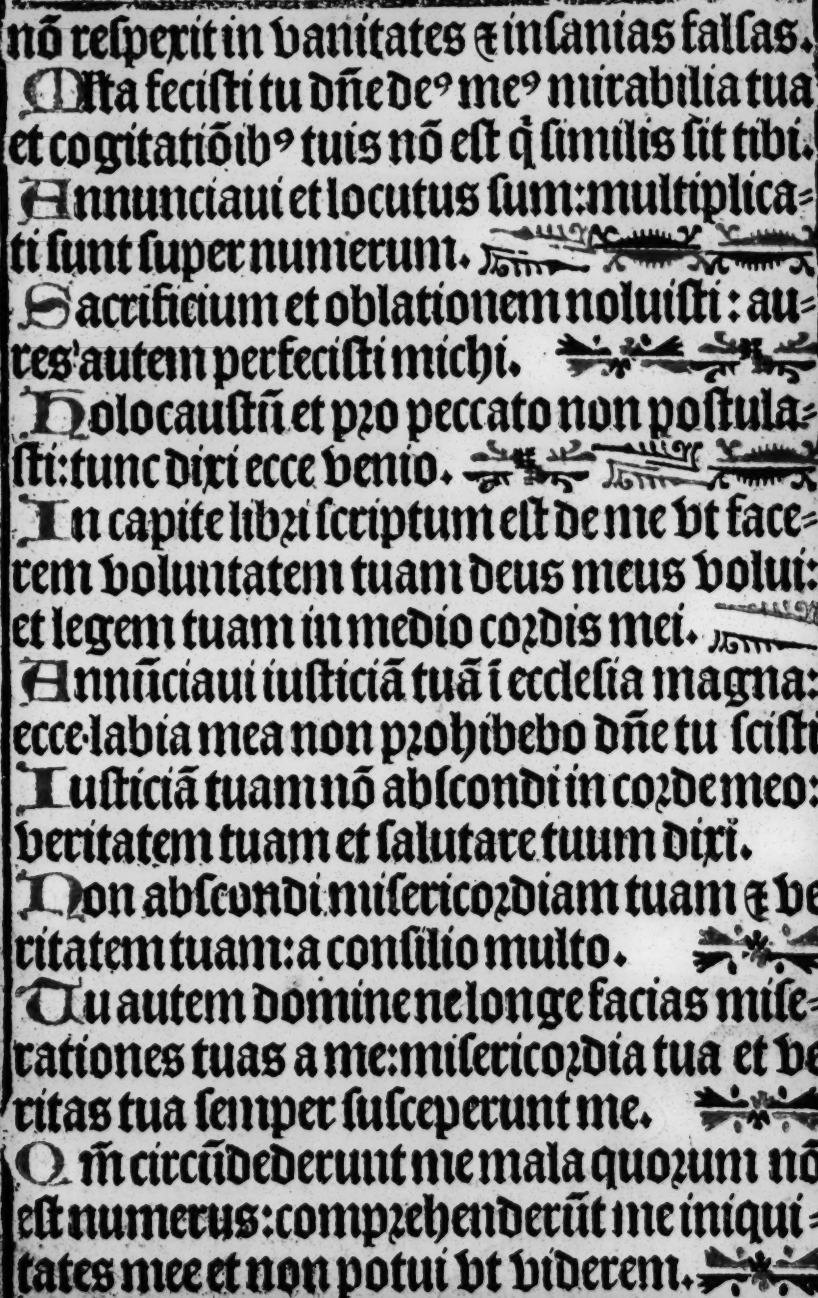 nõ reſpexit in vanitates ⁊ inſanias falſas.
Mĺta feciſti tu dñe deꝰ meꝰ mirabilia tua
et cogitatiõibꝰ tuis nõ eſt q̇ ſimilis ſit tibi.
Annunciaui et locutus ſum: multiplica⸗
ti ſunt ſuper numerum.
Sacrificium et oblationem noluiſti: au⸗
res autem perfeciſti michi.
Holocauſtũ et pꝛo peccato non poſtula⸗
ſti: tunc dixi ecce venio.
In capite libꝛi ſcriptum eſt de me vt face⸗
rem voluntatem tuam deus meus volui:
et legem tuam in medio coꝛdis mei.
Annũciaui iuſticiã tuã ĩ eccleſia magna:
ecce labia mea non pꝛohibebo dñe tu ſciſti
Iuſticiã tuam nõ abſcondi in coꝛde meo:
veritatem tuam et ſalutare tuum dixi.
Non abſcondi miſericoꝛdiam tuam ⁊ ve
ritatem tuam: a conſilio multo.
Tu autem domine ne longe facias miſe⸗
rationes tuas a me: miſericoꝛdia tua et ve
ritas tua ſemper ſuſceperunt me.
Qm̃ circũdederunt me mala quoꝛum nõ
eſt numerus: compꝛehenderũt me iniqui⸗
tates mee et non potui vt viderem.